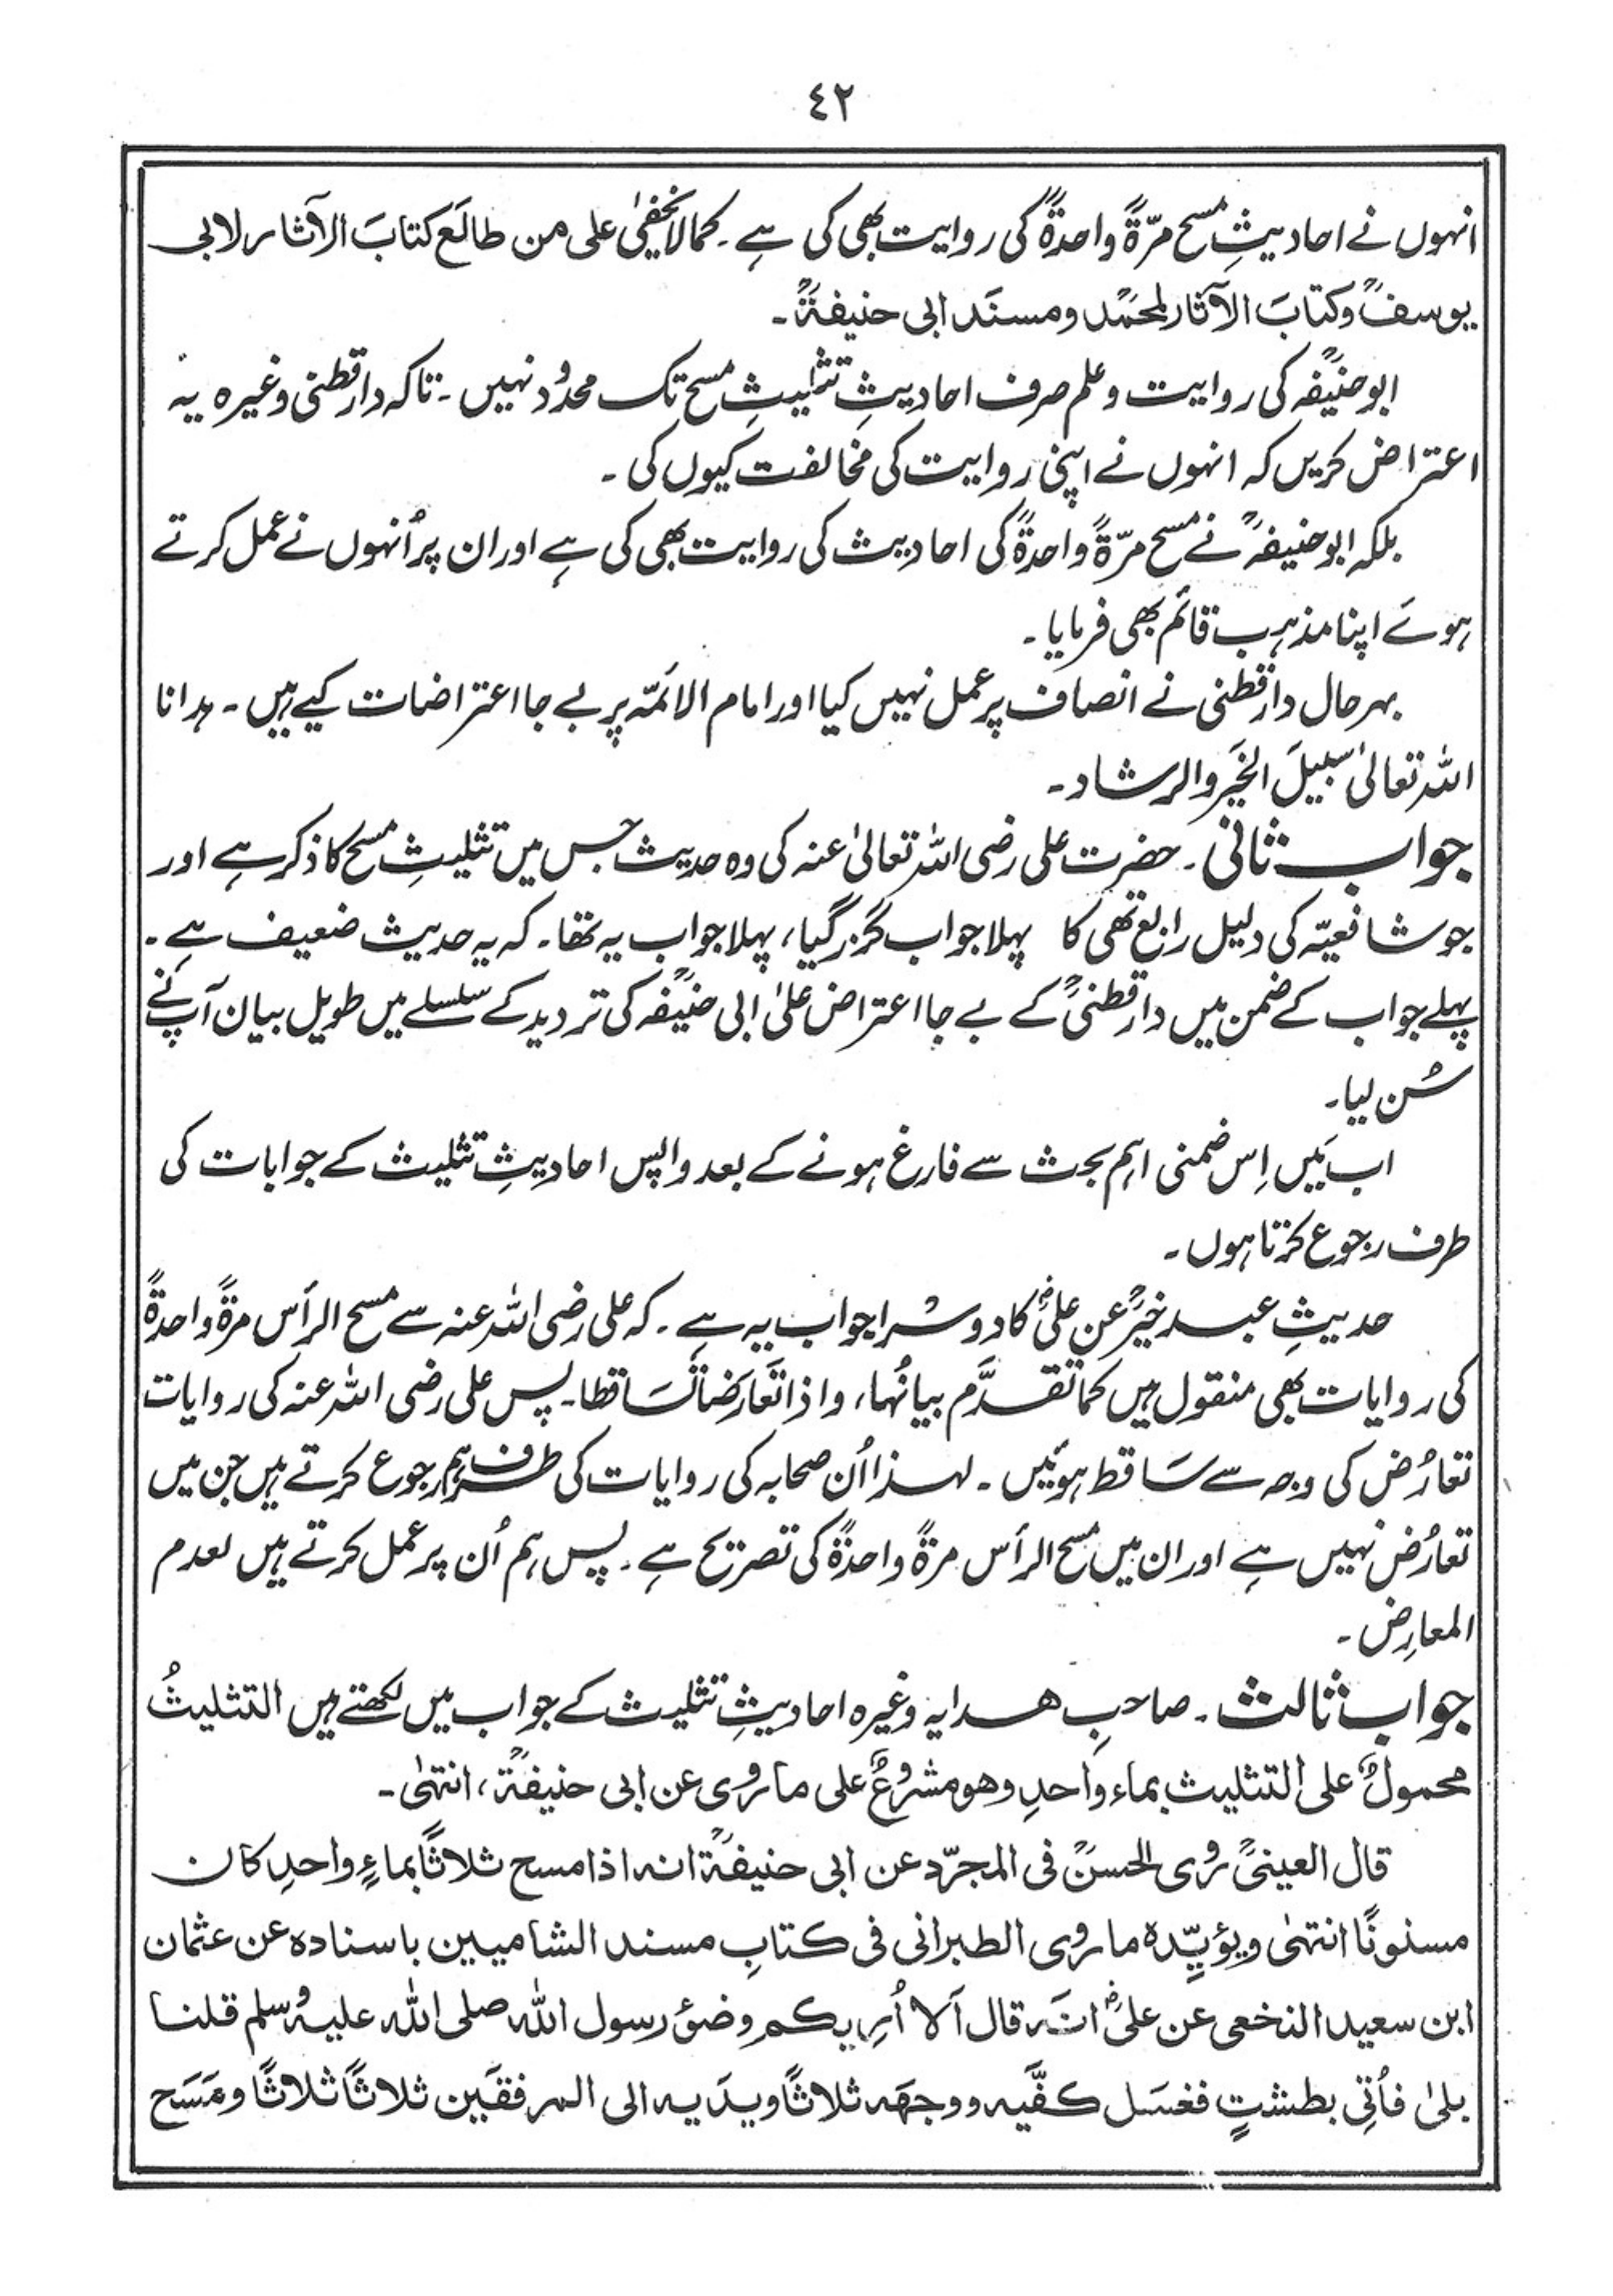 ٤٢
انہوں نے احادیثِ مسح مرّۃً واحدۃً کی روایت بھی کی ہے۔ کمالایخفیٰ علی من طالَع کتابَ الآثار لابی
یوسفؒ وکتابَ الآثار لمحمّدؒ ومسنَد ابی حنیفۃؒ۔
ابوحنیفہؒ کی روایت وعلم صرف احادیثِ تثلیثِ مسح تک محدود نہیں۔ تاکہ دارقطنی وغیرہ یہ
اعتراض کریں کہ انہوں نے اپنی روایت کی مخالفت کیوں کی۔
بلکہ ابوحنیفہؒ نے مسح مرّۃً واحدۃً کی احادیث کی روایت بھی کی ہے اور ان پر اُنہوں نے عمل کرتے
ہوئے اپنا مذہب قائم بھی فرمایا۔
بہرحال دارقطنی نے انصاف پر عمل نہیں کیا اور امام الائمّہ پر بے جا اعتراضات کیے ہیں۔ ہدانا
اللہ تعالیٰ سبیلَ الخیَر والرشاد۔
جواب ثانی۔ حضرت علی رضی اللہ تعالیٰ عنہ کی وہ حدیث جس میں تثلیثِ مسح کا ذکر ہے اور
جو شافعیّہ کی دلیل رابع تھی کا پہلا جواب گزر گیا، پہلا جواب یہ تھا۔ کہ یہ حدیث ضعیف ہے۔
پہلے جواب کے ضمن میں دارقطنیؒ کے بے جا اعتراض علیٰ ابی حنیفہؒ کی تردید کے سلسلے میں طویل بیان آپ نے
سُن لیا۔
اب مَیں اِس ضمنی اہم بحث سے فارغ ہونے کے بعد واپس احادیثِ تثلیث کے جوابات کی
طرف رجوع کرتا ہوں۔
حدیثِ عبد خیرؒ عن علیؓ کا دوسْرا جواب یہ ہے۔ کہ علی رضی اللہ عنہ سے مسح الرأس مرۃً واحدۃً
کی روایات بھی منقول ہیں کما تقدَّم بیانُہا، واذا تَعَارَضَا تَسَاقطا۔ پس علی رضی اللہ عنہ کی روایات
تعارُض کی وجہ سے سَاقط ہوئیں۔ لہذا اُن صحابہ کی روایات کی طرف ہم رجوع کرتے ہیں جن میں
تعارُض نہیں ہے اور ان میں مسح الرأس مرۃً واحدۃً کی تصریح ہے۔ پس ہم اُن پر عمل کرتے ہیں لعدم
المعارِض۔
جواب ثالث۔ صاحبِ ھدایہ وغیرہ احادیثِ تثلیث کے جواب میں لکھتے ہیں التثلیثُ
محمولٌ علی التثلیث بماء واحدِ وھو مشروعٌ علی ما رُوی عن ابی حنیفۃؒ، انتہیٰ۔
قال العینیؒ رُوی الحسنؒ فی المجرّد عن ابی حنیفۃؒ انہ اذا مسح ثلاثًا بماءٍ واحدِ کان
مسنونًا انتہیٰ ویؤیِّدہ ما رُوی الطبرانی فی کتابِ مسند الشامیین باسنادہ عن عثمان
ابن سعید النخعی عن علیؓ انّہ قال اَلا اُرِیکم وضوٗ رسول اللہ صلی اللہ علیہ وسلم قلنا
بلیٰ فأُتِی بطشتٍ فغسَل کفَّیہ ووجھَہ ثلاثًا ویدَیہ الی المرفقَین ثلاثًا ثلاثًا ومَسَح